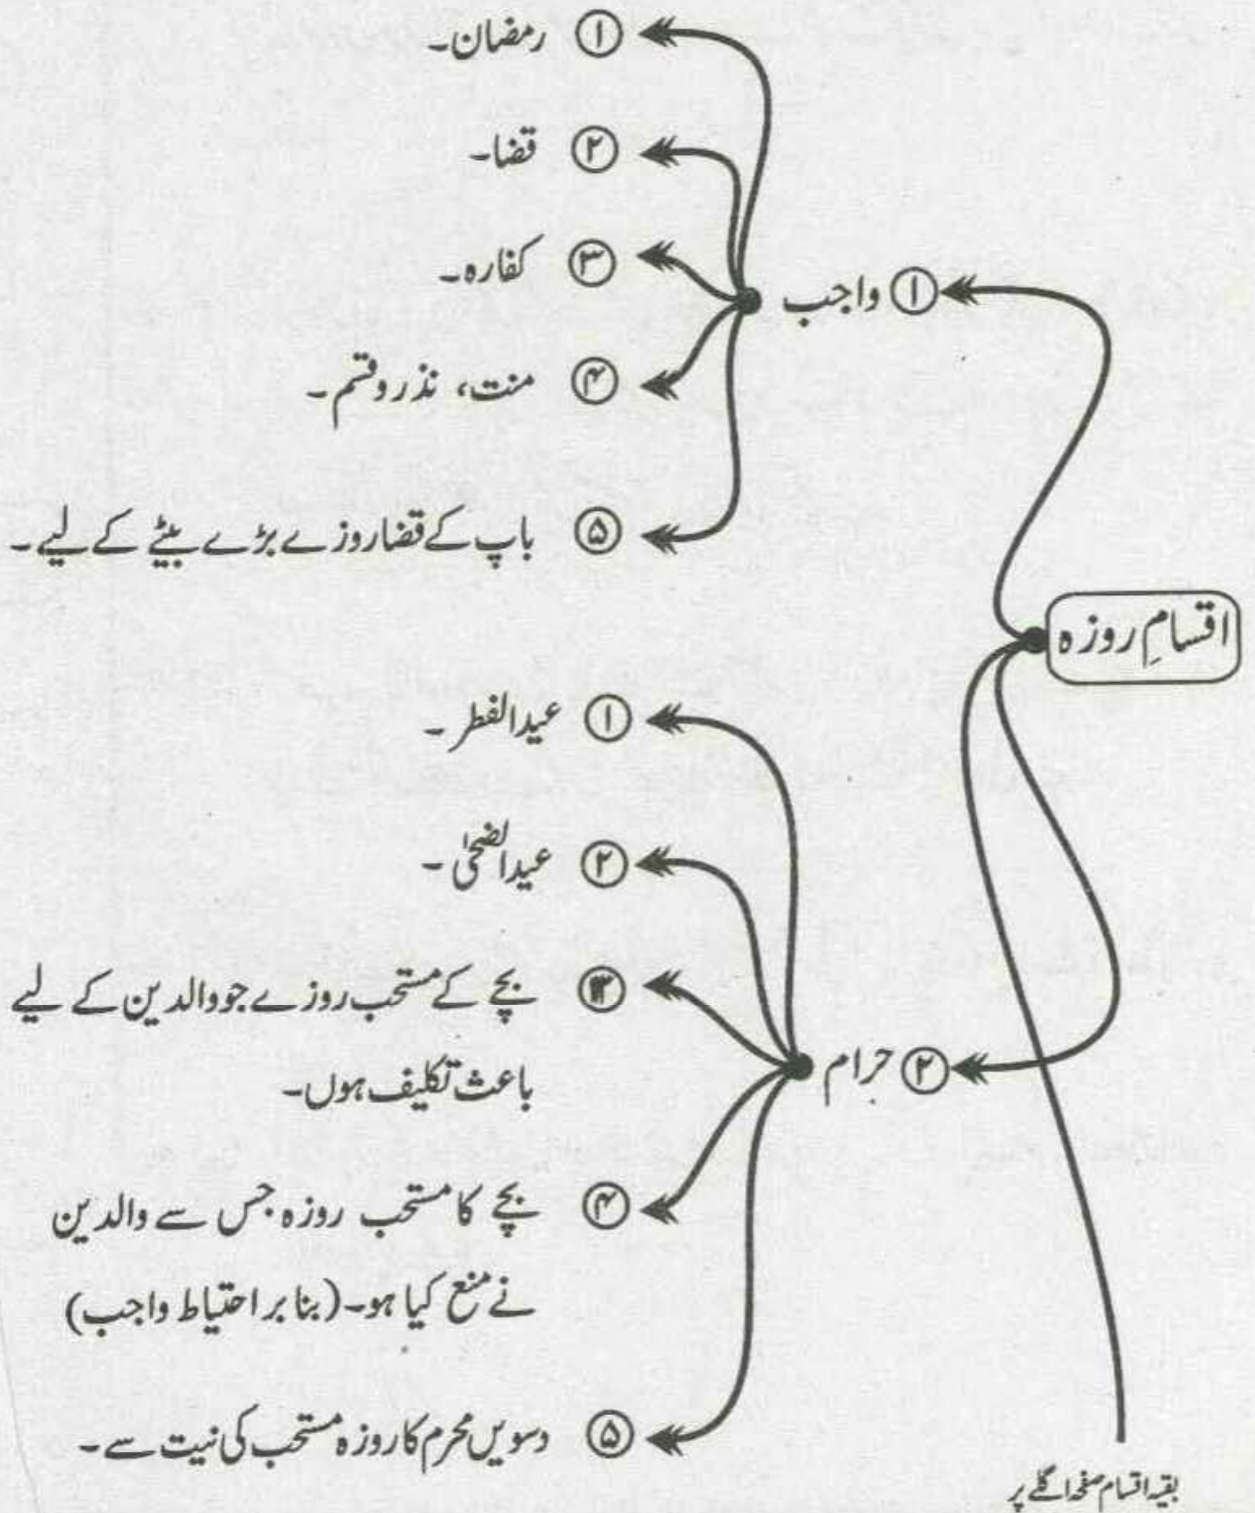 اقسامِ روزہ
① واجب
① رمضان۔
② قضا۔
③ کفارہ۔
④ منت، نذر و قسم۔
⑤ باپ کے قضا روزے بڑے بیٹے کے لیے۔
② حرام
① عیدالفطر۔
② عیدالضحیٰ۔
③ بچے کے مستحب روزے جو والدین کے لیے
باعث تکلیف ہوں۔
④ بچے کا مستحب روزہ جس سے والدین
نے منع کیا ہو۔ (بنا بر احتیاط واجب)
⑤ دسویں محرم کا روزہ مستحب کی نیت سے۔
بقیہ اقسام صفحہ اگلے پر